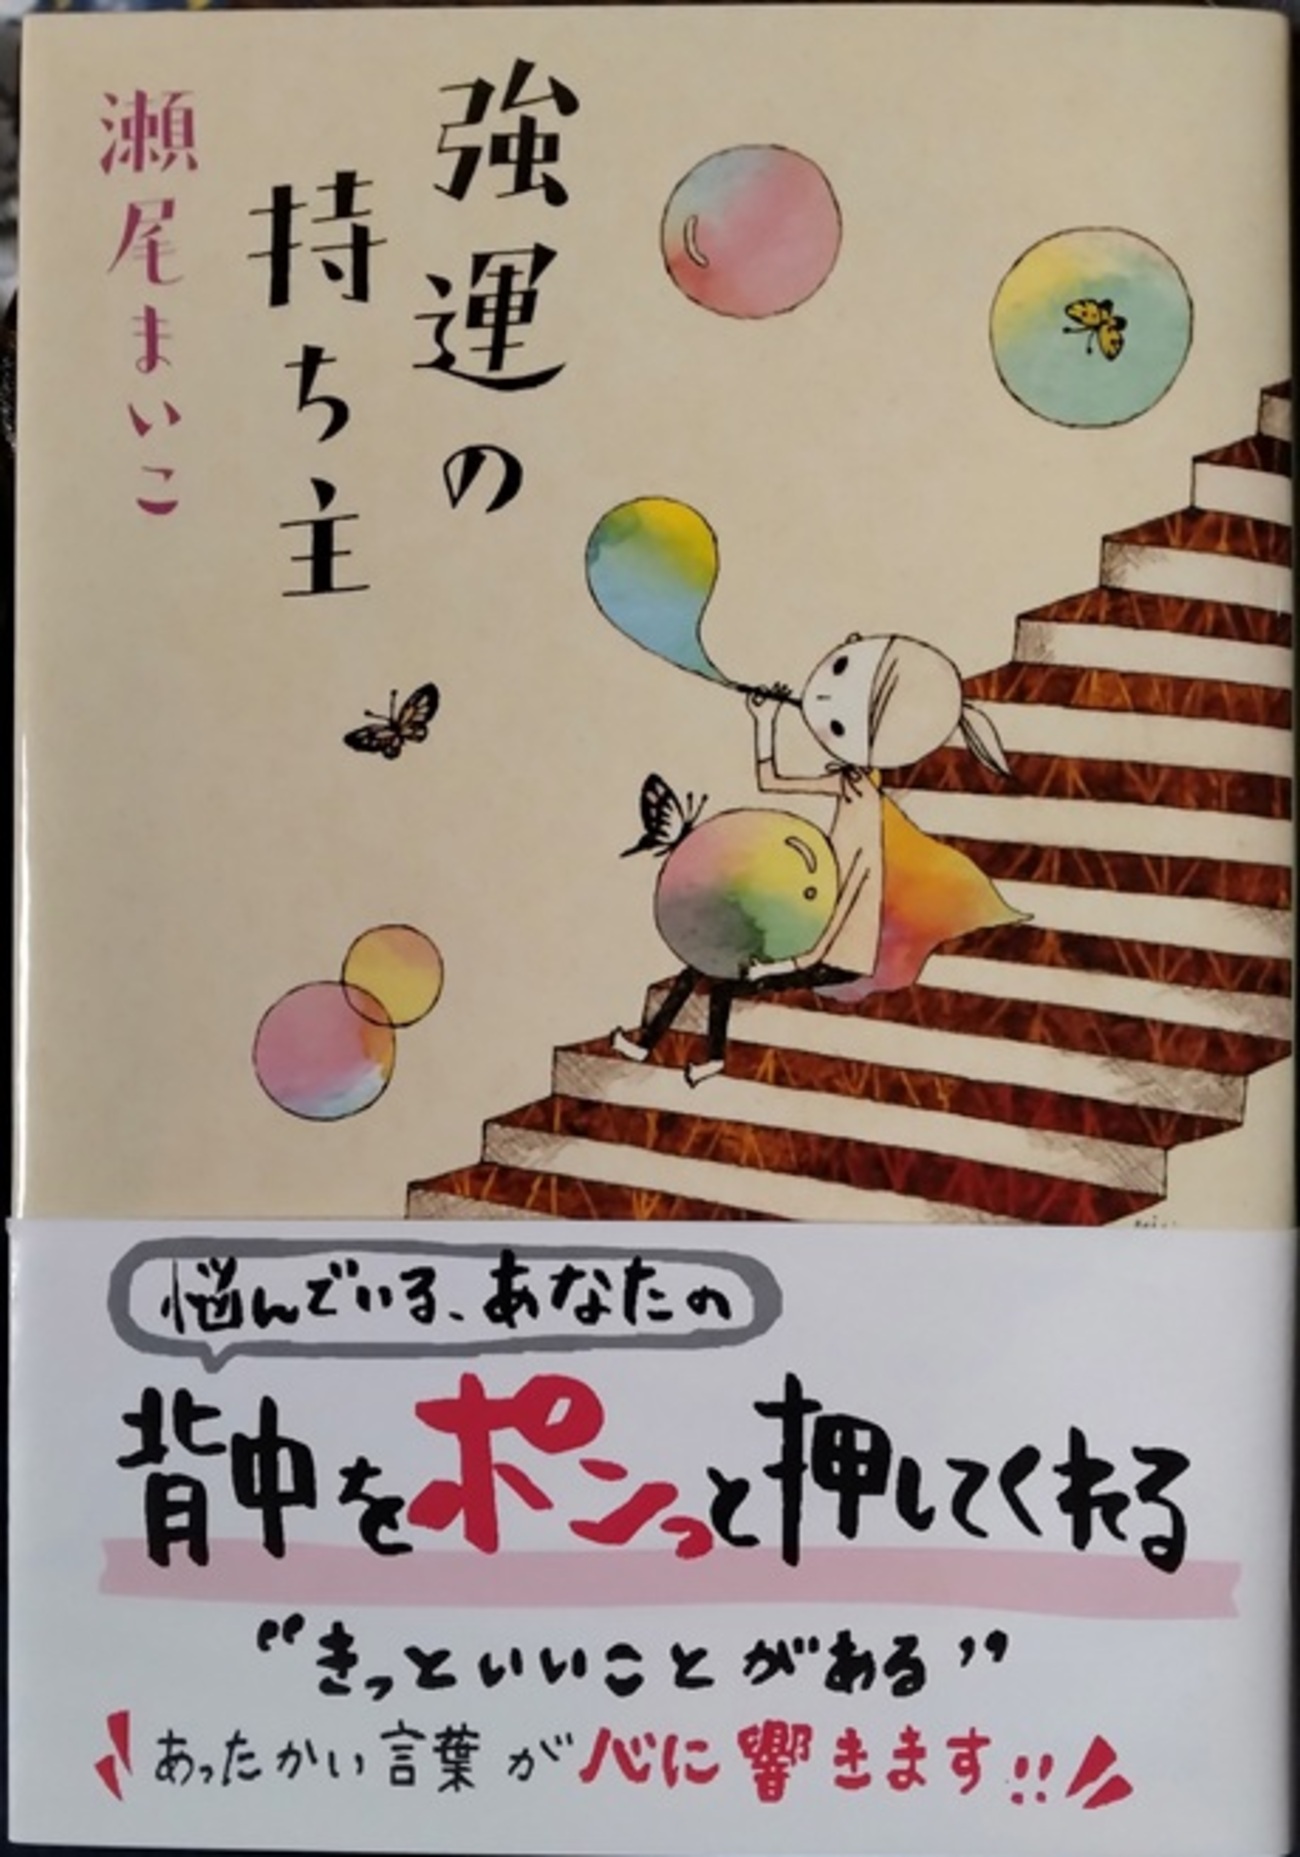 強運の
持ち主
瀬尾まいこ
悩んでいる、あなたの
背中をポンっと押してくれる
“きっといいことがある”
あったかい言葉が心に響きます!!